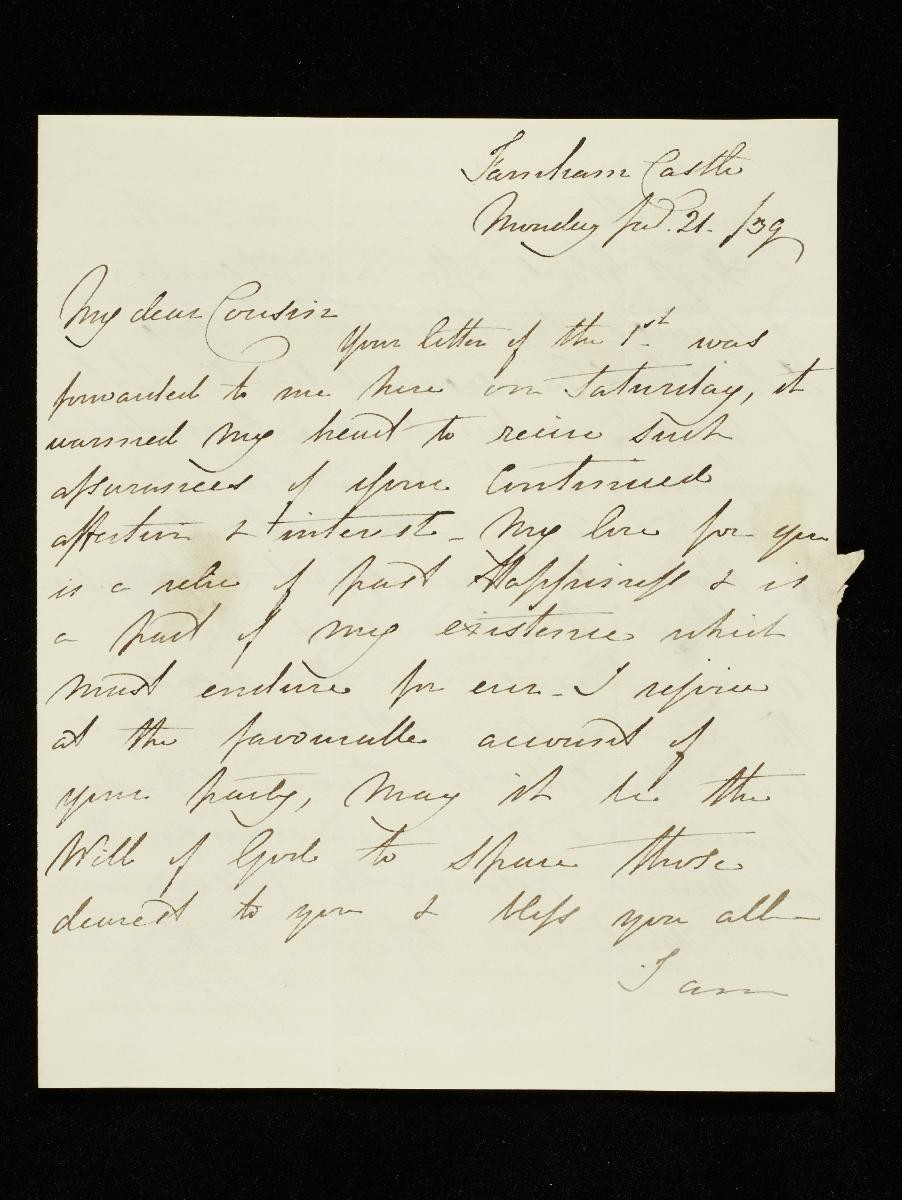 Farnham Castle
Monday Jad. 21. /39
My dear Cousin
Your letter of the 1st was
forwarded to me here on Saturday, it
warmed my heart to receive such
assurances of your continued
affection & interest - My love for you
is a relic of past Happiness & is
a part of my existence which
must endure for ever - I rejoice
at the favourable account of
your party, May it be the
Will of God to spare those
dearest to you & bless you all -
I am